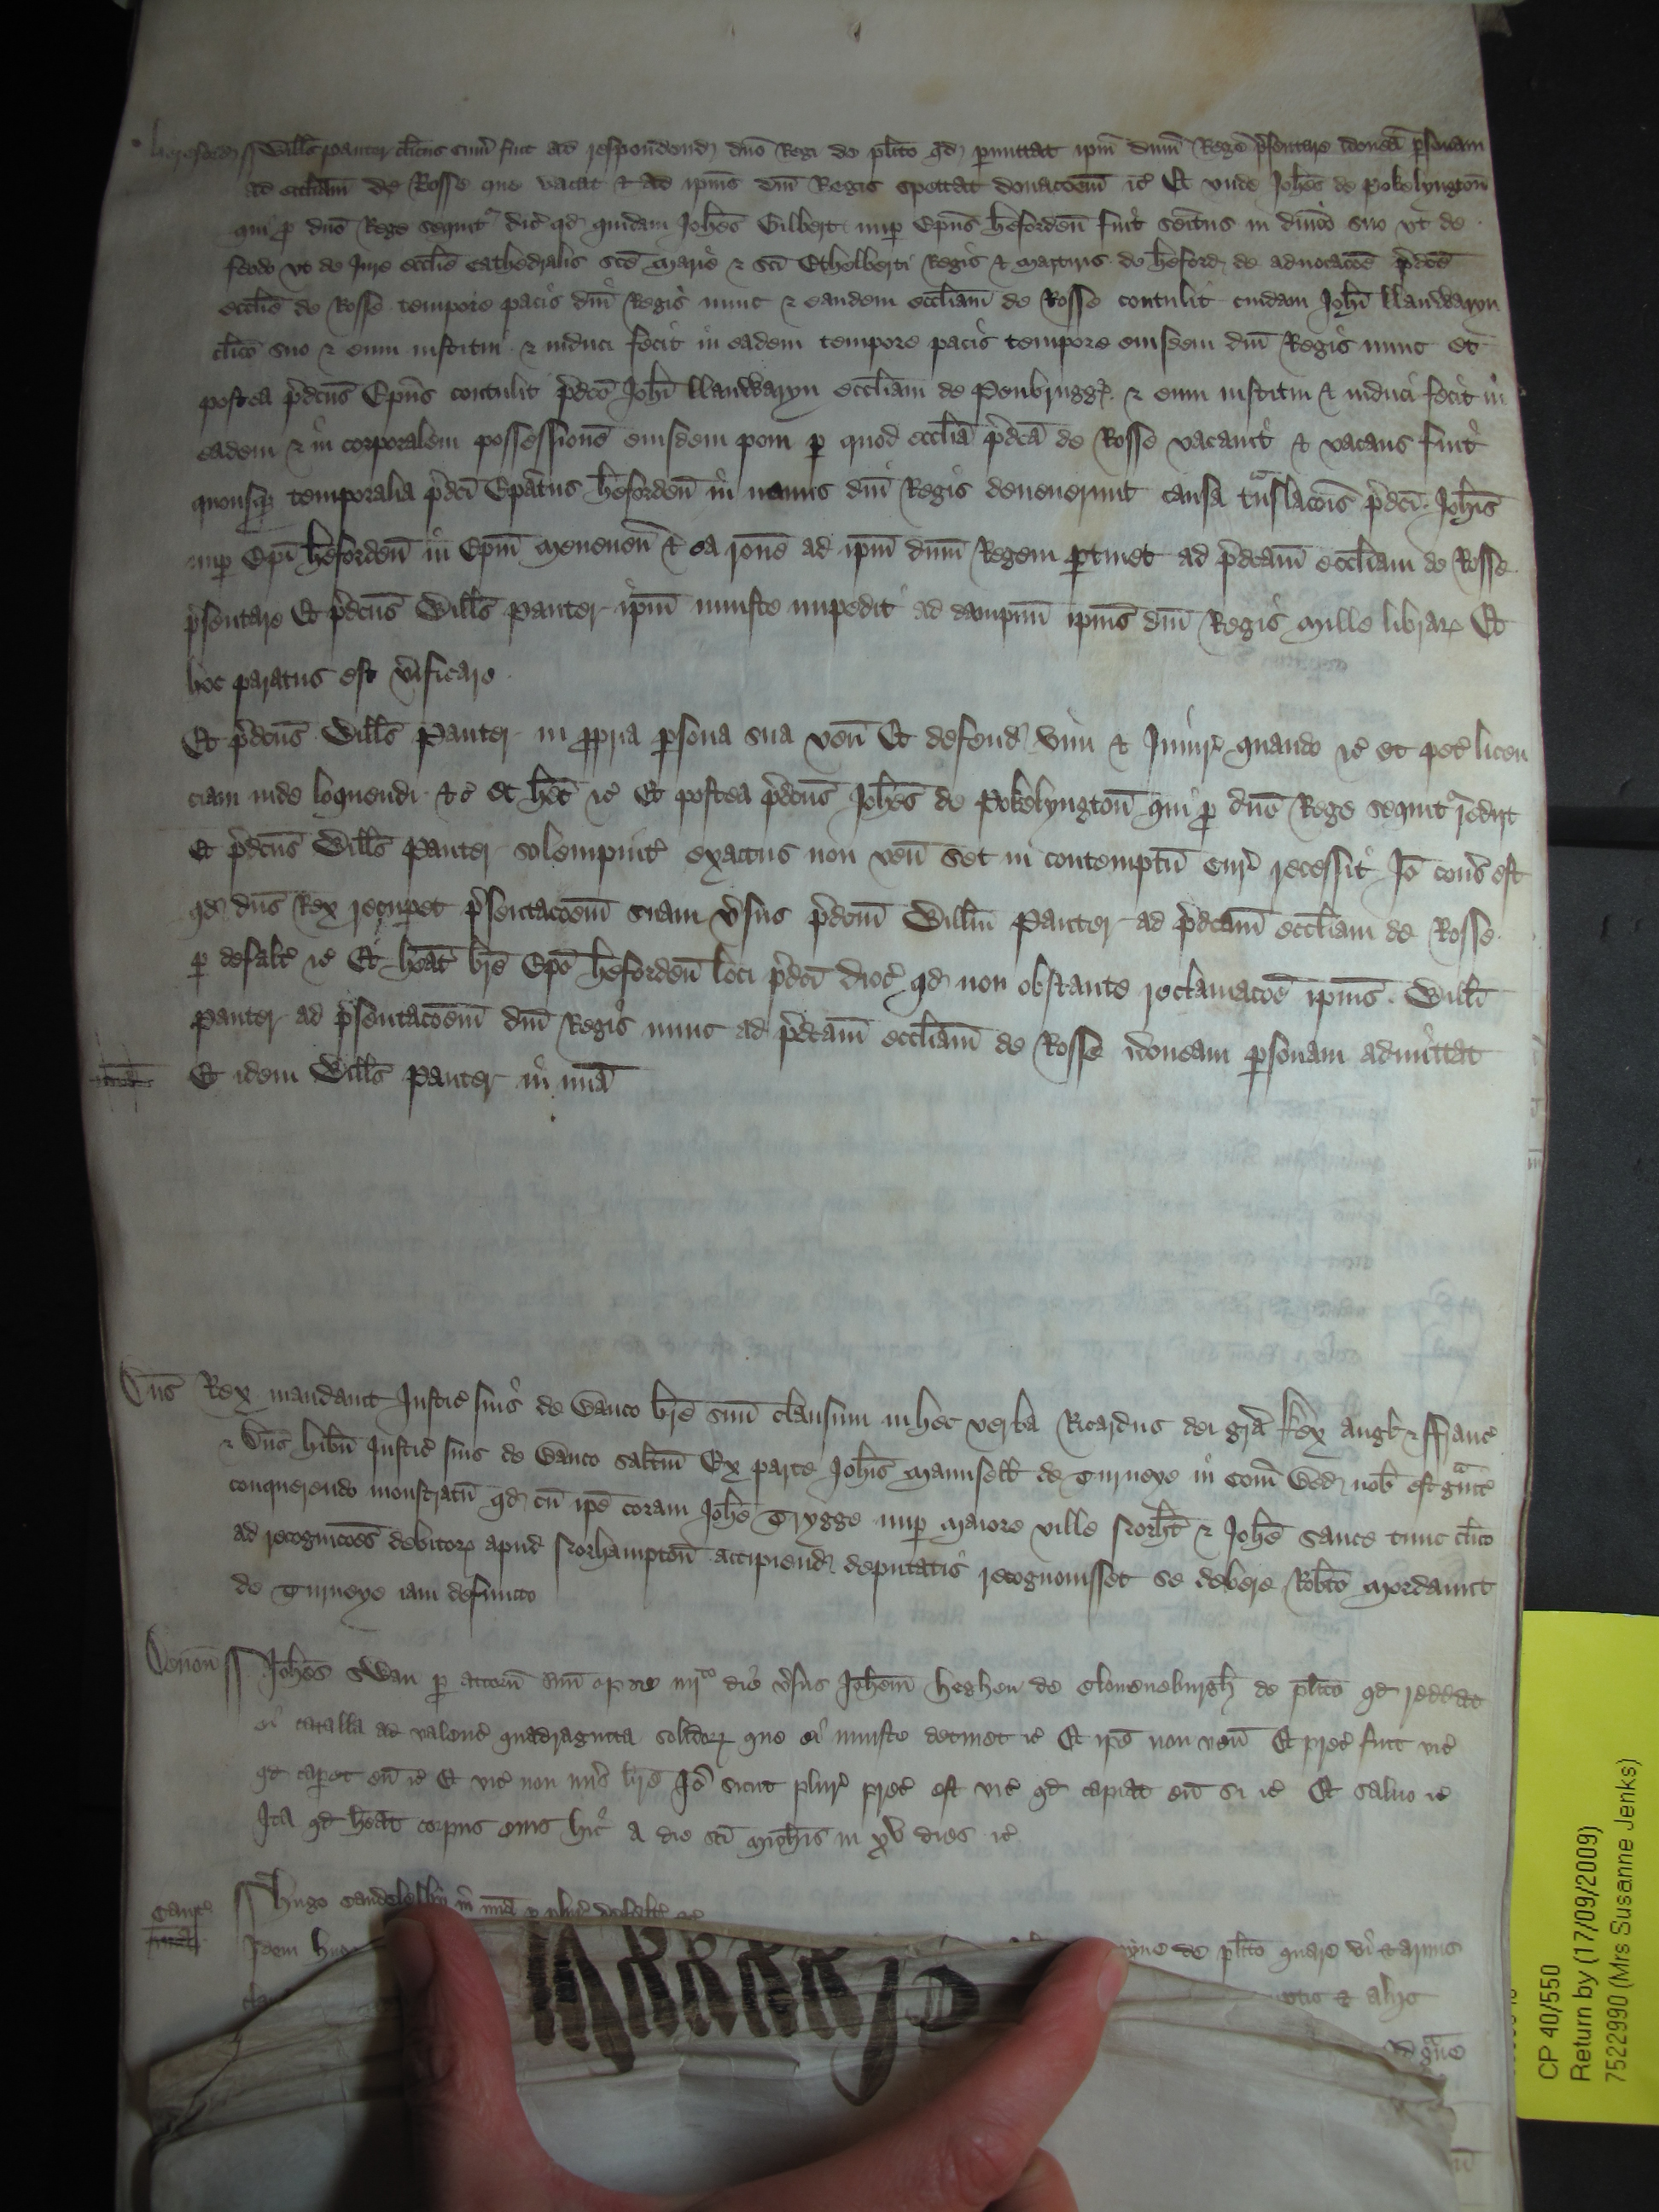 hereford ſſ Wills Panter clicus sum fuit ad respondend dno Regi de plito qd pmittat ipm dnm Rege psentare idonea psonam
ad ecctiam de Rosse que vacat & ad ipius dni Regis spectat donacoem &c Et unde Johes de Pokelyngton
qui p dno Rege sequit dic qd quidam Johes Gilbert nup Epus hereforden fuit seitus in dnico suo vt de
feodo vt de Jure ecclie cathedralis sce marie & sci Ethelberti Regis & martiris de hereford de aduocacoe pdce
ecclie de Rosse tempore pacis dni Regis nunc & eandem eccliam de Rosse contulit cuidam Johi llanwaryn
clico suo & eum institui & induci fecit in eadem tempore pacis tempore eiusdem dni Regis nunc et
postea pdcus Epus contulit pdco Johi llanwaryn eccliam de Penbrugg & eum institui & induci fecit in
eadem & in corporalem possessione eiusdem poni p quod ecclia pdca de Rosse vacauit & vacans fuit
quousq temporalia pdci Epatus hereforden in manus dni Regis deuenerunt causa translacois pdci Johis
nup Epi hereforden in Epm meneuen & ea rone ad ipm dnm Regem ptinet ad pdcam eccliam de Rosse
psentare Et pdcus Wills Panter ipm iniuste impedit ad dampnm ipius dni Regis mille librar Et
hoc paratus est vificare
Et pdcus Wills Panter in ppria psona sua ven Et defend vim & Iniur quando &c et pet licen
ciam inde loquendi &c et het &c Et postea pdcus Johes de Pokelyngton qui p dno Rege sequit redijt
Et pdcus Wills Panter solempnit exactus non ven set in contemptu cur recessit Io cons est
qd dns Rex recupet psentacoem suam vsus pdcm Willm Panter ad pdcam eccliam de Rosse
p defalt &c Et heat bre Epo hereforden loci pdci dioc qd non obstante reclamacoe ipius Willi
Panter ad psentacoem dni Regis nunc ad pdcam eccliam de Rosse idoneam psonam admittat
Et idem Wills Panter in mia
Dns Rex mandauit Justic suis de Banco bre suu clausum in hec verba Ricardus dei gra Rex Angl & ffranc
& Dns hibn Justic suis de Banco saltm Ex parte Johis Maunsell de Turueye in Com Bed nob est guit
conquerendo monstratu qd cu ipe coram Johe Trygge nup maiore ville Norht & Johe Sauce tunc clico
ad recognicoes debitor apud Norhampton accipiend deputatis recognouisset se debere Robto Mordaunt
de Turueye iam defuncto
Deuon ſſ Johes Swan p attorn suu op se iiijto die vsus Johem heghen de Clouneburgh de plito qd reddat
ei catalla ad valenc quadraginta solidor que ei iniuste detinet &c Et ipe non ven Et prec fuit vic
qd capet eu &c Et vic non mis bre Io sicut plur prec est vic qd capiat eu si &c Et saluo &c
Ita qd heat corpus eius hic a die sci Michis in xv dies &c
ſſ Hugo in mia p plur defalt &c
Idem Hugo de plito quare vi & armis
& alijs
CP 40/550
Return by (17/09/2009)
7522990 (Mrs Susanne Jenks)